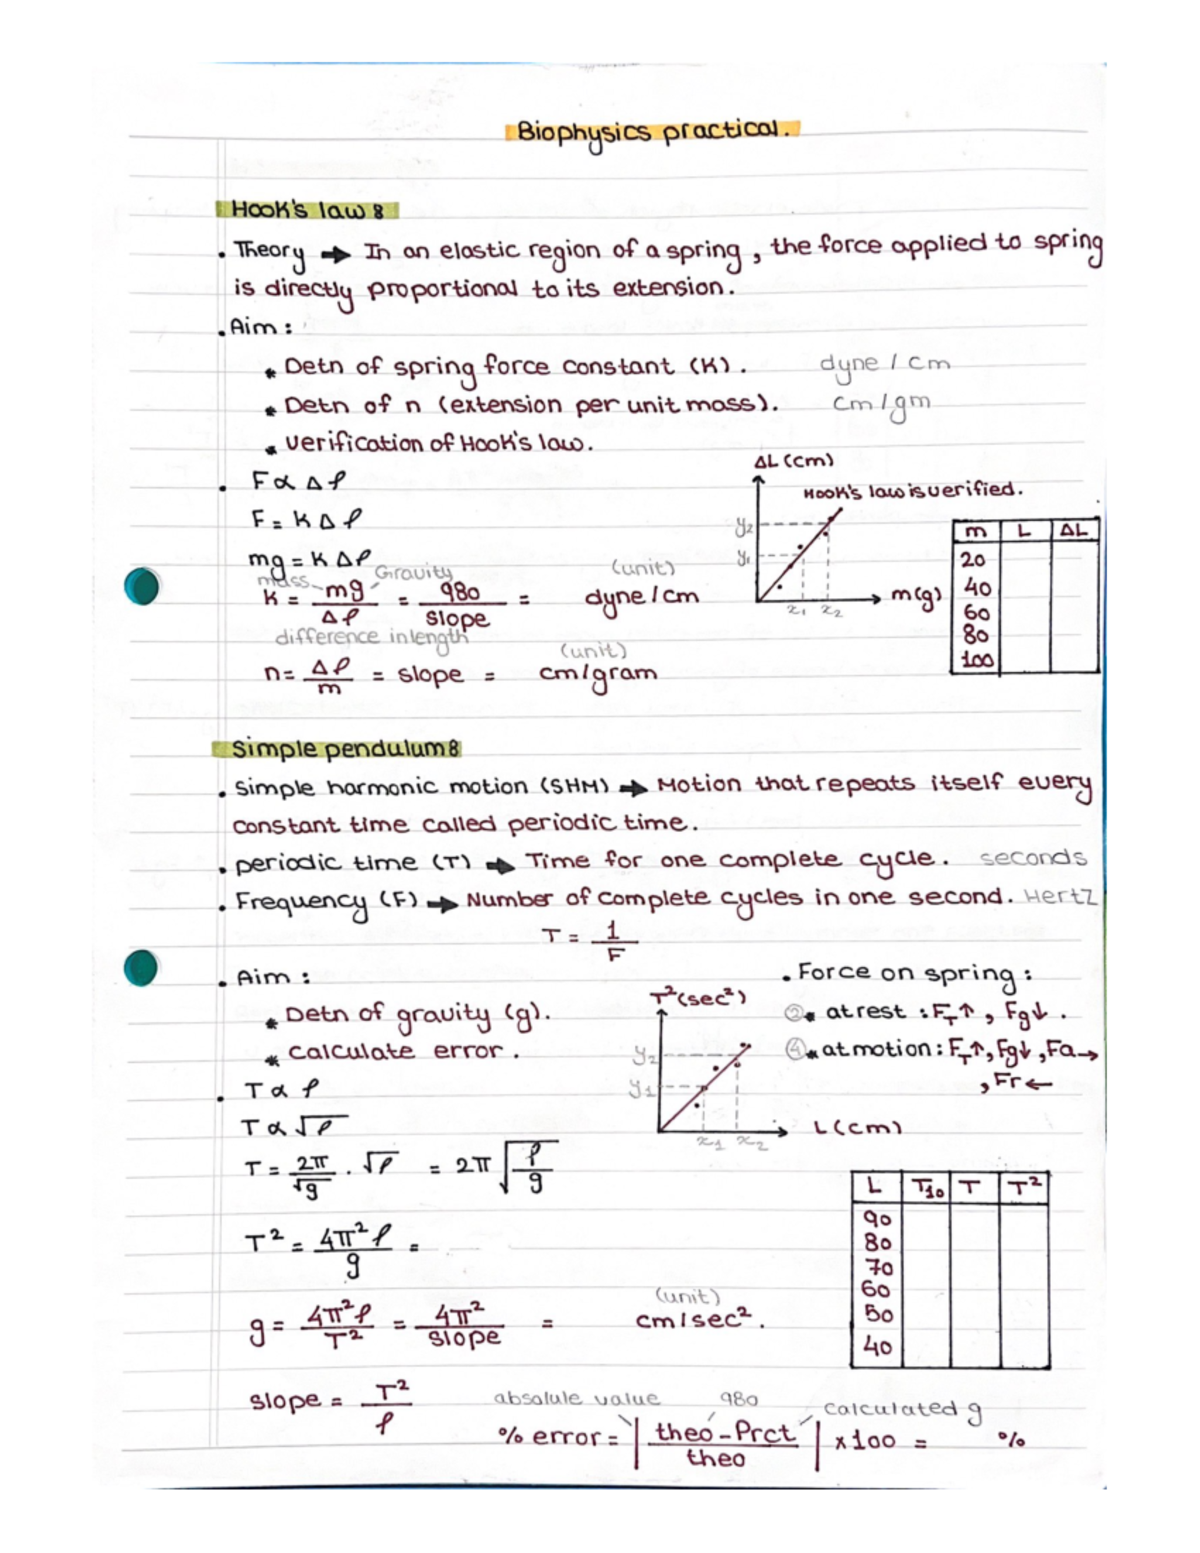 Biophysics practical.
Hook's law :
. Theory → In an elastic region of a spring, the force applied to spring
is directly proportional to its extension.
. Aim :
* Detn of spring force constant (K). dyne / cm
* Detn of n (extension per unit mass). cm / gm
* verification of Hook's law.
. F ∝ Δℓ
F = K Δℓ
mg = K Δℓ
mass Gravity (unit)
K = mg/Δℓ = 980/slope = dyne / cm
difference in length (unit)
n = Δℓ/m = slope = cm/gram
ΔL (cm)
Hook's law is verified.
y2
y1
x1 x2
m(g)
m L ΔL
20
40
60
80
100
Simple pendulum :
. Simple harmonic motion (SHM) → Motion that repeats itself every
constant time called periodic time.
. periodic time (T) → Time for one complete cycle. seconds
. Frequency (F) → Number of complete cycles in one second. Hertz
T = 1/F
. Aim :
* Detn of gravity (g).
* calculate error .
. T ∝ ℓ
T ∝ √ℓ
T = 2π/√g . √ℓ = 2π √ℓ/g
T² = 4π²ℓ/g =
(unit)
g = 4π²ℓ/T² = 4π²/slope = cm/sec².
T²(sec²)
y2
y1
x1 x2
L(cm)
. Force on spring :
② * at rest : FT↑ , Fg↓ .
④ * at motion : FT↑, Fg↓ , Fa→
, Fr←
L T10 T T²
90
80
70
60
50
40
slope = T²/ℓ
absolule value 980 calculated g
% error = | theo - Prct / theo | x 100 = %